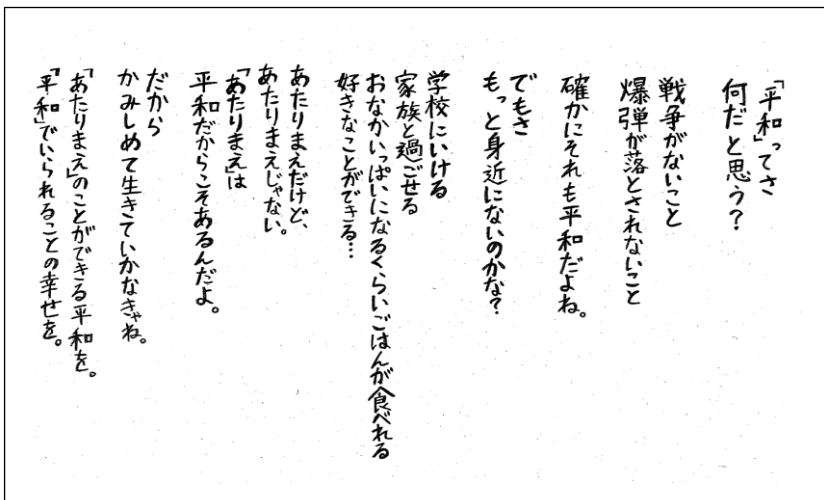 「平和」ってさ
何だと思う?
戦争がないこと
爆弾が落とされないこと
確かにそれも平和だよね。
でもさ
もっと身近にないのかな?
学校にいける
家族と過ごせる
おなかいっぱいになるくらいごはんが食べれる
好きなことができる…
あたりまえだけど、
あたりまえじゃない。
「あたりまえ」は
平和だからこそあるんだよ。
だから
かみしめて生きていかなきゃね。
「あたりまえ」のことができる平和を。
『平和でいられることの幸せを。